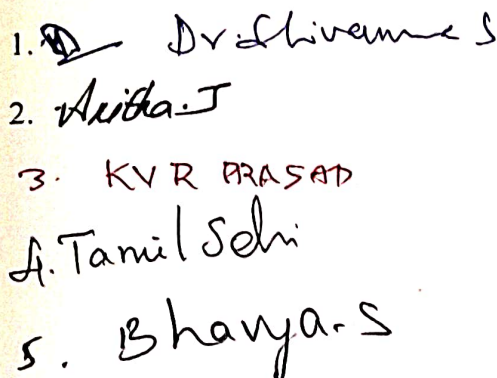 1. Dr. Shivanna S
2. Anitha. J
3. KVR PRASAD
4. Tamil Selvi
5. Bhavya. S